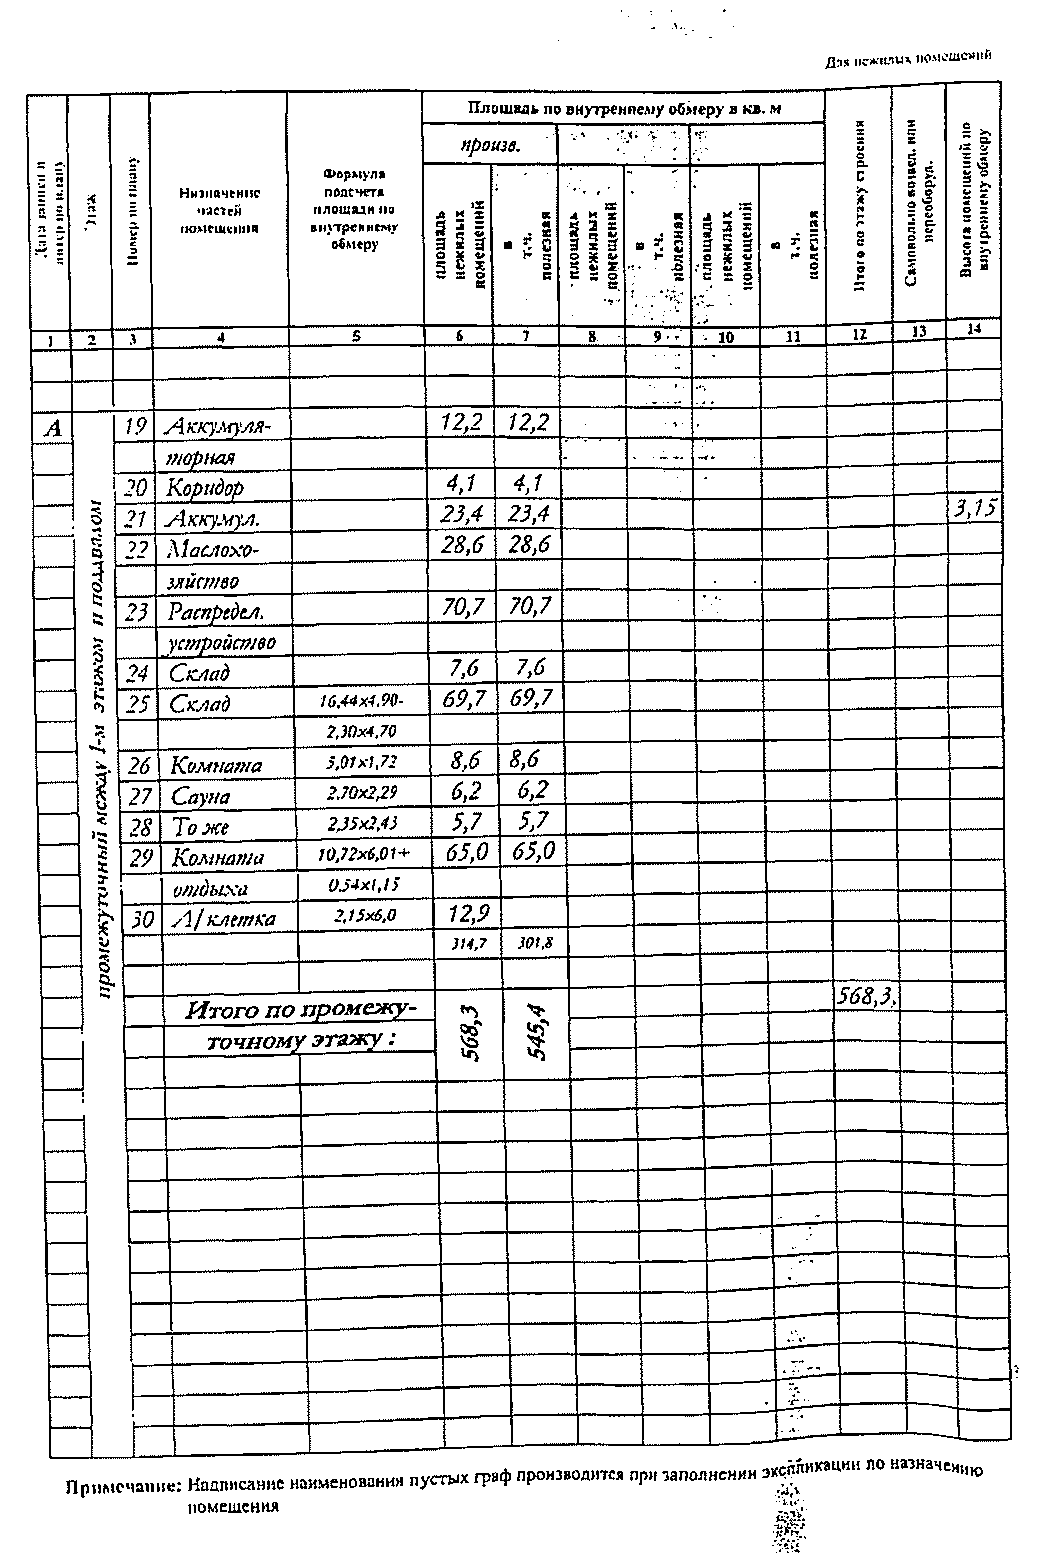 Для нежилых помещений
Площадь по внутреннему обмеру в кв. м
произв.
Этаж
Номер по плану
Назначение частей помещения
Формула подсчета площади по внутреннему обмеру
площадь нежилых помещений
в т.ч. полезная
площадь нежилых помещений
в т.ч. полезная
площадь нежилых помещений
в т.ч. полезная
Итого по этажу строения
Самовольно возвед. или переоборуд.
Высота помещений по внутреннему обмеру
1 2 3 4 5 6 7 8 9 10 11 12 13 14
промежуточный между 1-м этажом и подвалом
А 19 Аккумуля- 12,2 12,2
торная
20 Коридор 4,1 4,1
21 Аккумул. 23,4 23,4 3,15
22 Маслохо- 28,6 28,6
зяйство
23 Распредел. 70,7 70,7
устройство
24 Склад 7,6 7,6
25 Склад 16,44х4,90- 69,7 69,7
2,30х4,70
26 Комната 5,01х1,72 8,6 8,6
27 Сауна 2,70х2,29 6,2 6,2
28 То же 2,35х2,43 5,7 5,7
29 Комната 10,72х6,01+ 65,0 65,0
отдыха 0,54х1,15
30 Л/клетка 2,15х6,0 12,9
314,7 301,8
Итого по промежу- 568,3 545,4 568,3.
точному этажу :
Примечание: Надписание наименования пустых граф производится при заполнении экспликации по назначению
помещения